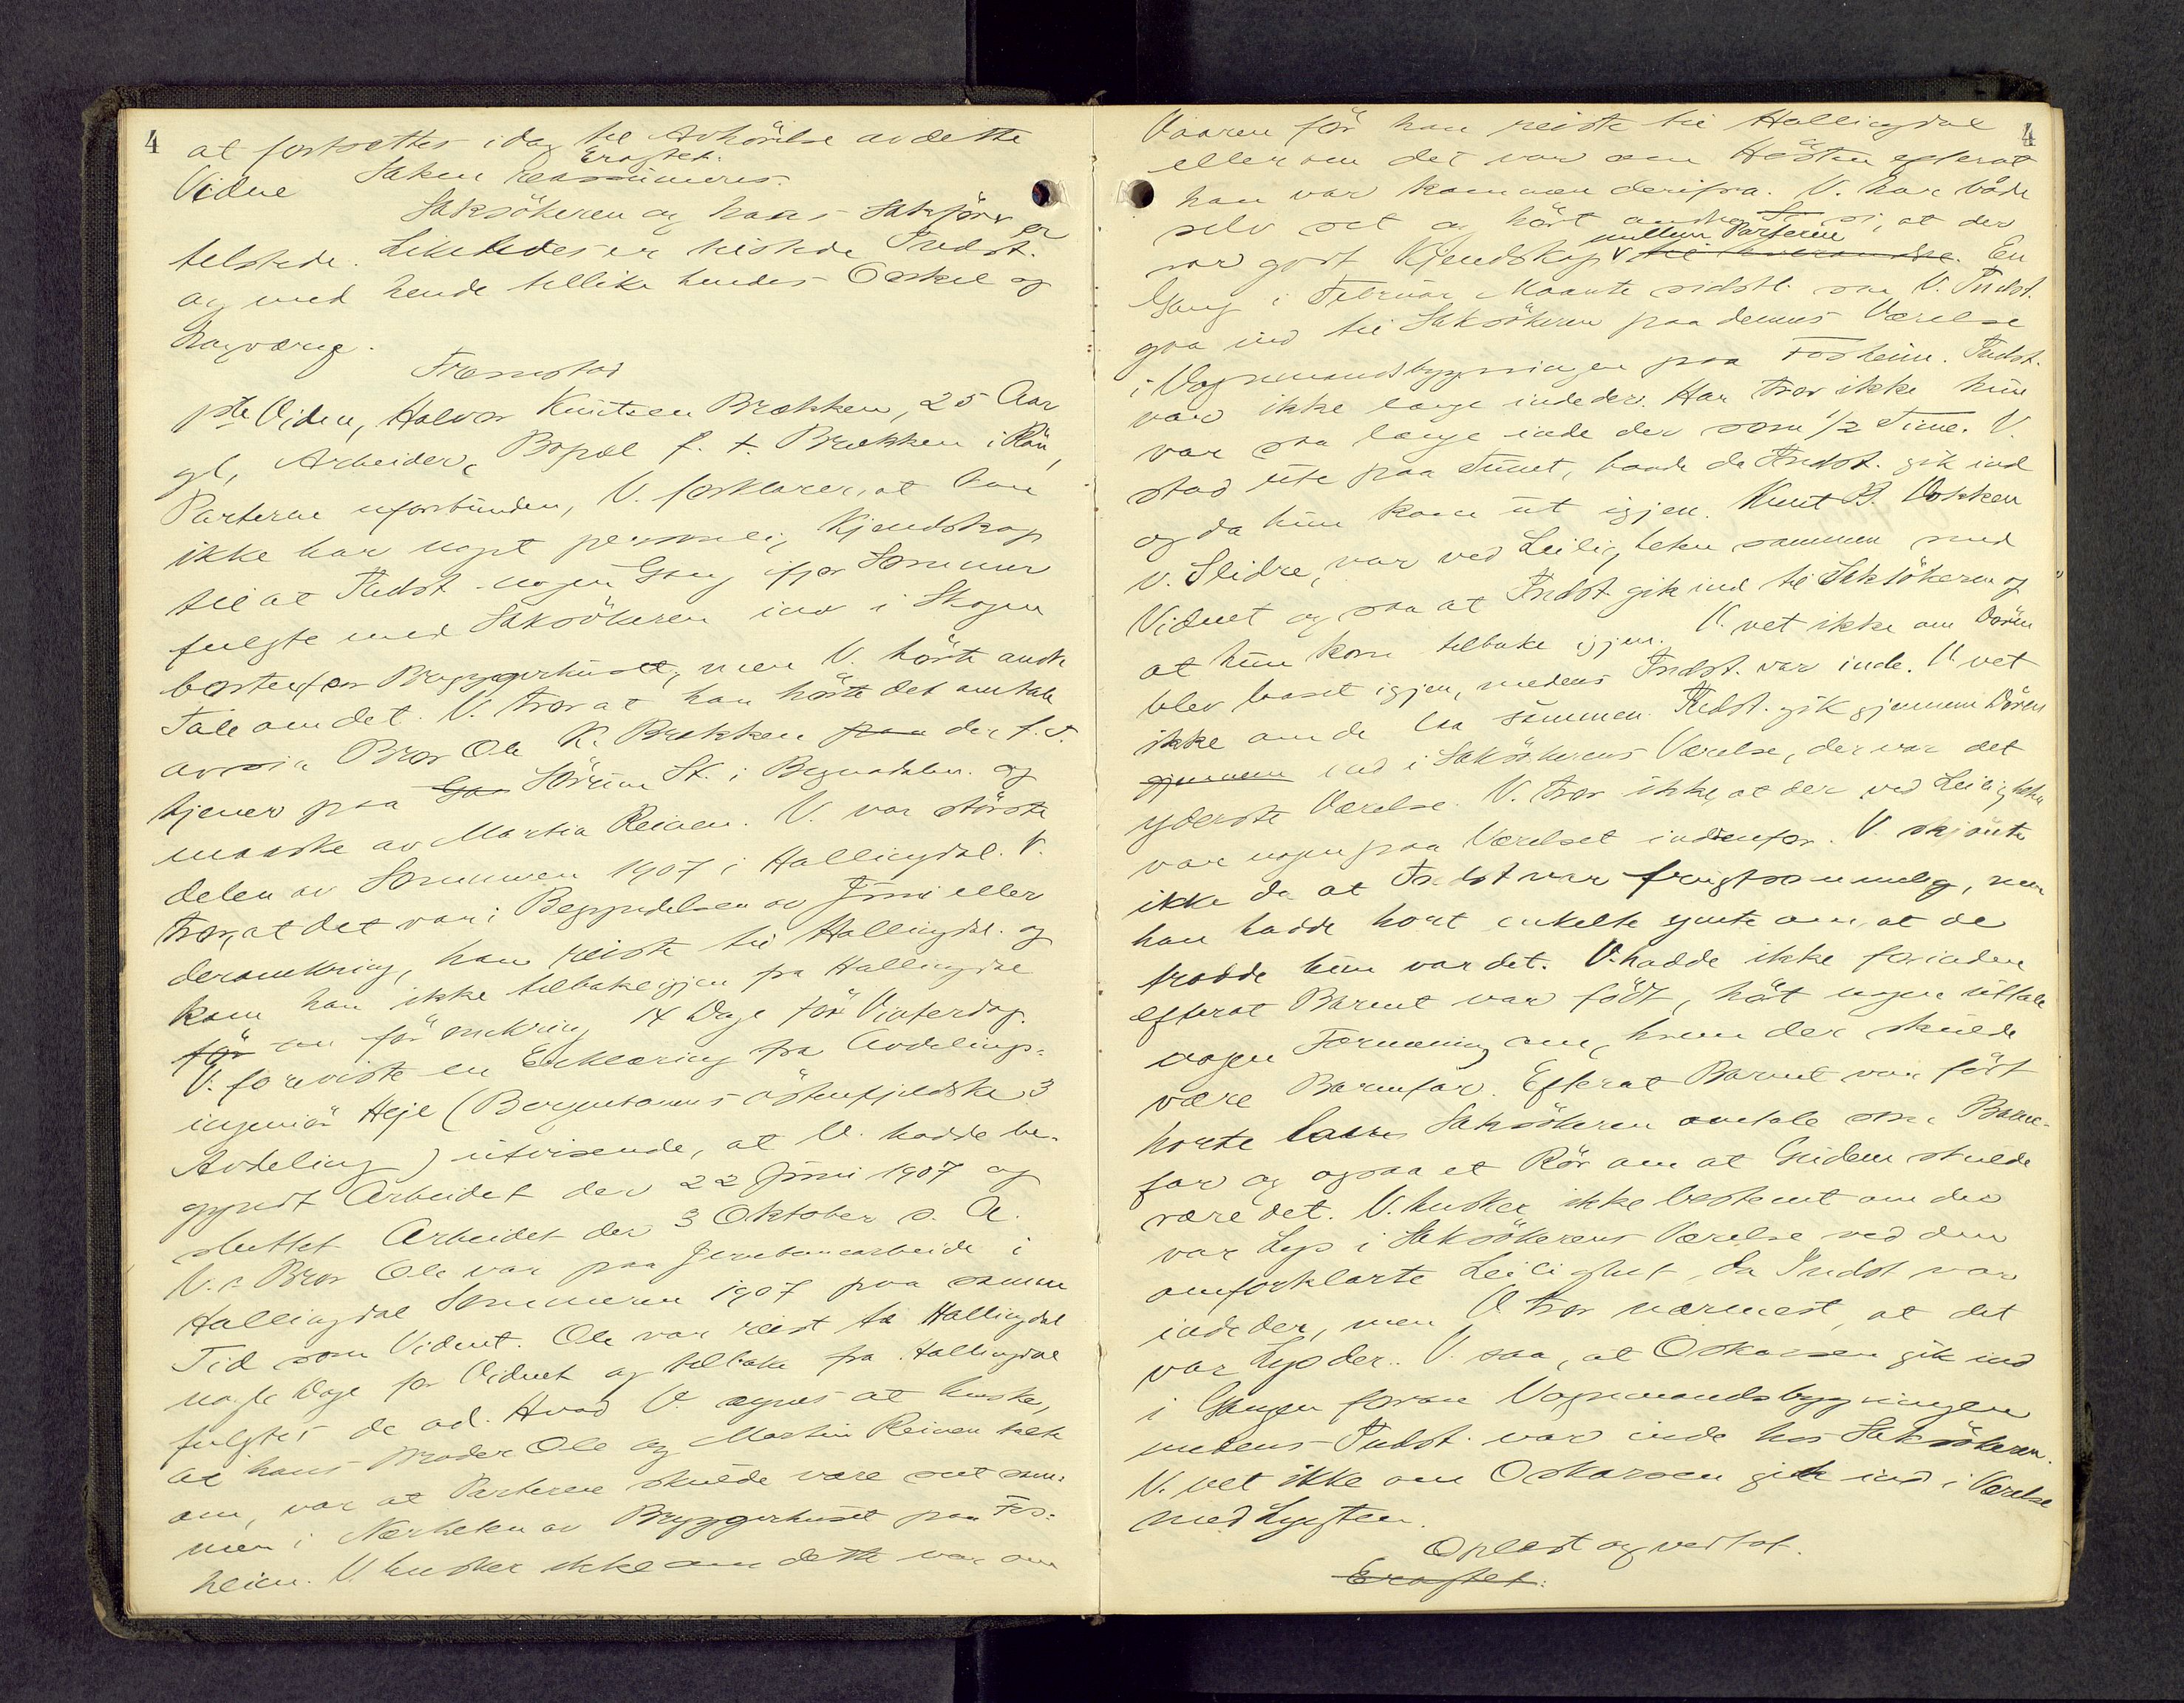 4
at fortsættes idag til Avhörelse av dette
Eragtet.
Vidne Saken reassumeres.
Saksökeren og hans Sakförer er
tilstede. Likeledes er tilstede Indst.
og med hende tillike hendes Onkel og
Lagværge.
Fremstod
1ste Vidne, Halvor Knutsen Brækken, 25 Aar
gl, Arbeider, Bopæl f. t. Brækken i Rön,
Parterne uforbunden, V. forklarer, at han
ikke har noget personlig Kjendskap
til at Indst. nogen Gang ifjor Sommer
fulgte med Saksökeren ind i Skogen
bortenfor Bryggerhuset, men V. hörte andre
Tale om det. V. tror at han hörte det omtale
av sin Bror Ole K. Brækken paa der f. t.
tjener paa Sörum St. i Begnadalen og
maaske av Martin Reinen. V. var störste
delen av Sommeren 1907 i Hallingdal. V.
tror, at det var i Begyndelsen av Juni eller
deromkring, han reiste til Hallingdal og
kom han ikke tilbake igjen fra Hallingdal
för en för omkring 14 Dage för Vinterdag.
V. foreviste en Erklæring fra Avdelings-
ingeniör Heje (Bergensbanens östenfjeldske 3
Avdeling) utvisende, at V. hadde be-
gyndt Arbeidet den 22 Juni 1907 og
sluttet Arbeidet den 3 Oktober s. A.
V.s Bror Ole var paa Jernbanearbeide i
Hallingdal Sommeren 1907 paa samme
Tid som Vidnet. Ole var reist til Hallingdal
nogle Dage för Vidnet og tilbake fra Hallingdal
fulgtes de ad. Hvad V. synes at huske,
at hans Broder Ole og Martin Reinen talte
om, var at Parterne skulde være set sam-
men i Nærheten av Bryggerhuset paa Fos-
heim. V. husker ikke om dette var om
4
Vaaren för han reiste til Hallingdal
eller om det var om Hösten efterat
han var kommen derifra. V. har både
selv set og hört andre si, at der
mellem Parterne
var godt Kjendskap til hverandre. En
Gang i Februar Maaned sidstl. saa V. Indst.
gaa ind til Saksökeren paa dennes Værelse
i Vognmandsbygningen paa Fosheim. Indst.
var ikke længe inde der. Han tror ikke hun
var saa længe inde der som 1/2 Time. V.
stod ute paa Tunet, baade da Indst. gik ind
og da hun kom ut igjen. Knut B. Lokken
V. Slidre, var ved Leiligheten sammen med
Vidnet og saa at Indst gik ind til Saksökeren og
at hun kom tilbake igjen. V. vet ikke om Dören
blev laaset igjen, medens Indst. var inde. V. vet
ikke om de laa sammen. Indst. gik gjennem Dören
gjennem ind i Saksökerens Værelse, der var det
yderste Værelse. V. tror ikke, at der ved Leiligheten
var nogen paa Værelset indenfor. V. skjönte
ikke da at Indst var frugtsommelig, men
han hadde hört enkelte ymte om, at de
trodde hun var det. V. hadde ikke forinden
efterat Barnet var födt, hört nogen uttale
nogen Formening om, hvem der skulde
være Barnefar. Efterat Barnet var födt
hörte han Saksökeren omtale som Barne-
far og ogsaa et Rör om at Guiden skulde
være det. V. husker ikke bestemt om der
var Lys i Saksökerens Værelse ved den
omforklarte Leilighet, da Indst var
inde der, men V. tror nærmest, at det
var Lys der. V. saa, at Oskarsen gik ind
i Gangen foran Vognmandsbygningen
medens Indst. var inde hos Saksökeren.
V. vet ikke om Oskarsen gik ind i Værelse
med Lygten.
Oplæst og vedtat.
Eragtet: